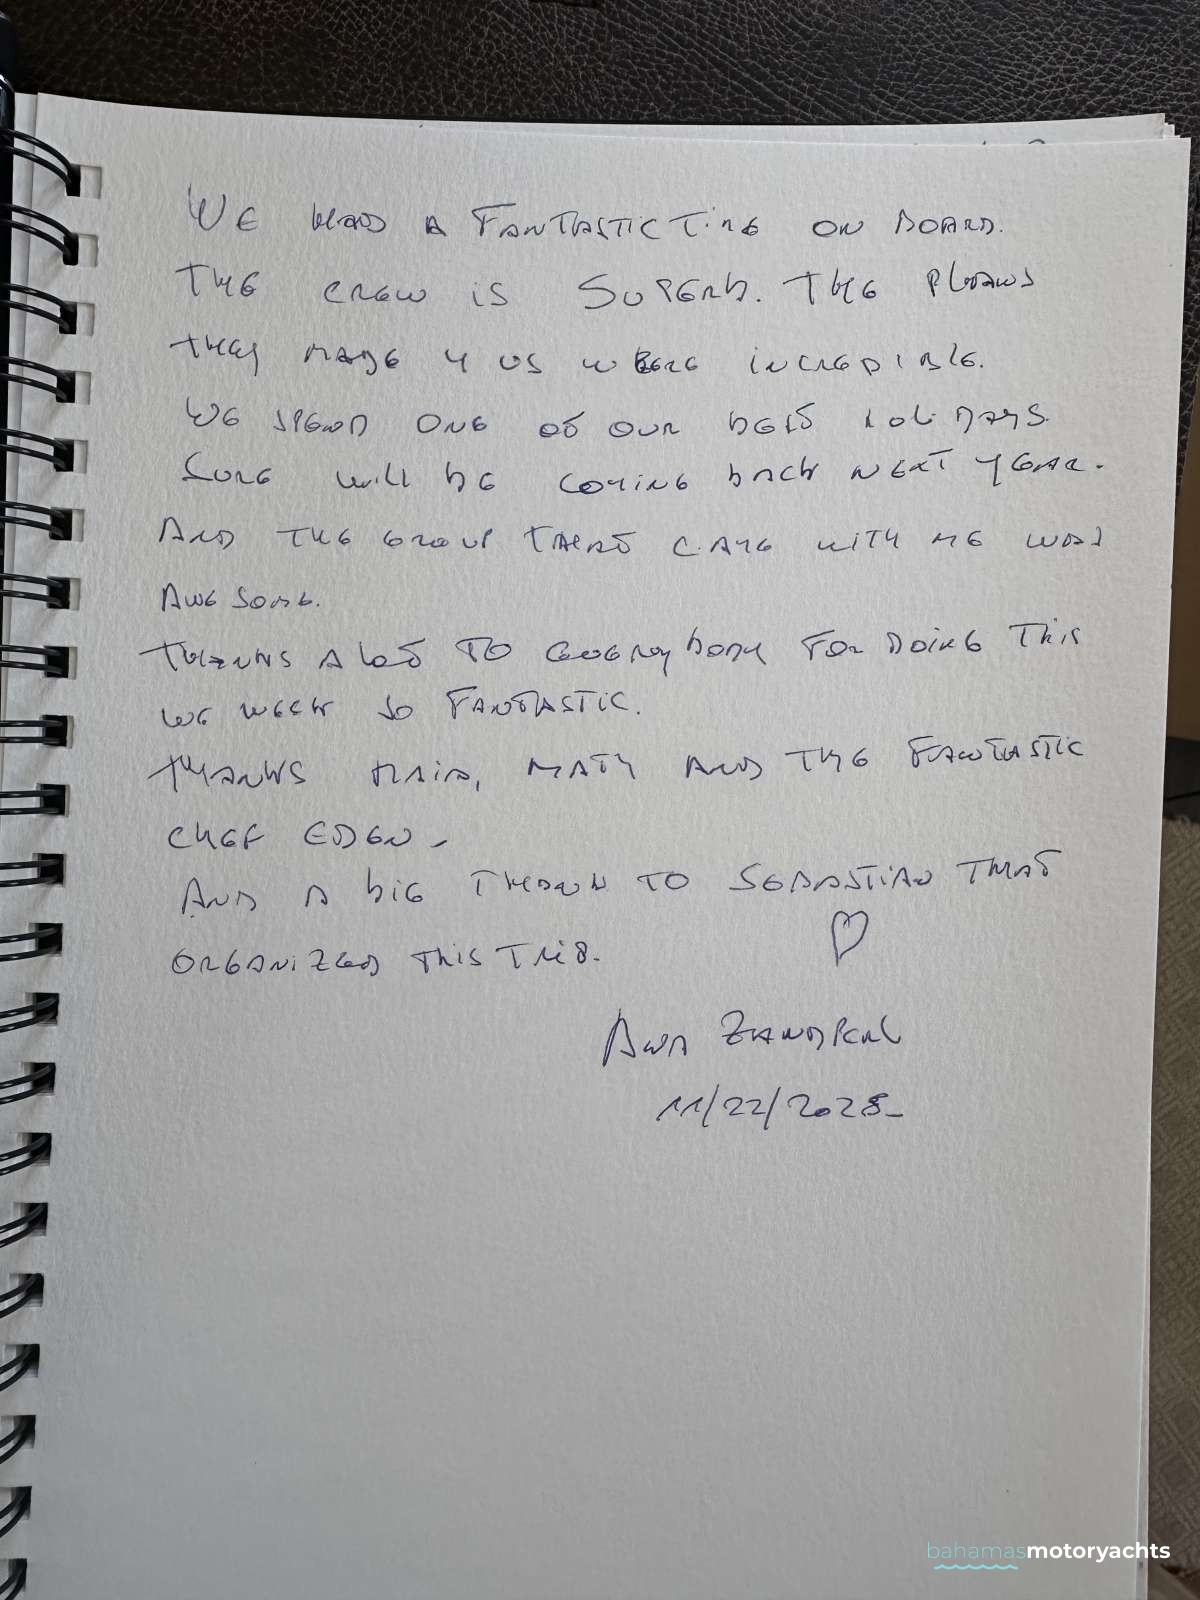 WE HAD A FANTASTIC TIME ON BOARD.
THE CREW IS SUPERB. THE PLANS
THEY MADE 4 US WERE INCREDIBLE.
WE SPEND ONE OF OUR BEST HOLIDAYS.
SURE WILL BE COMING BACK NEXT YEAR.
AND THE GROUP THAT CAME WITH ME WAS
AWESOME.
THANKS A LOT TO EVERYBODY FOR DOING THIS
WE WEEK SO FANTASTIC.
THANKS MATY AND THE FANTASTIC
CHEF EDEN -
AND A BIG THANK TO SEBASTIAN THAT
ORGANIZED THIS TRIP.
11/22/2025-
bahamasmotoryachts